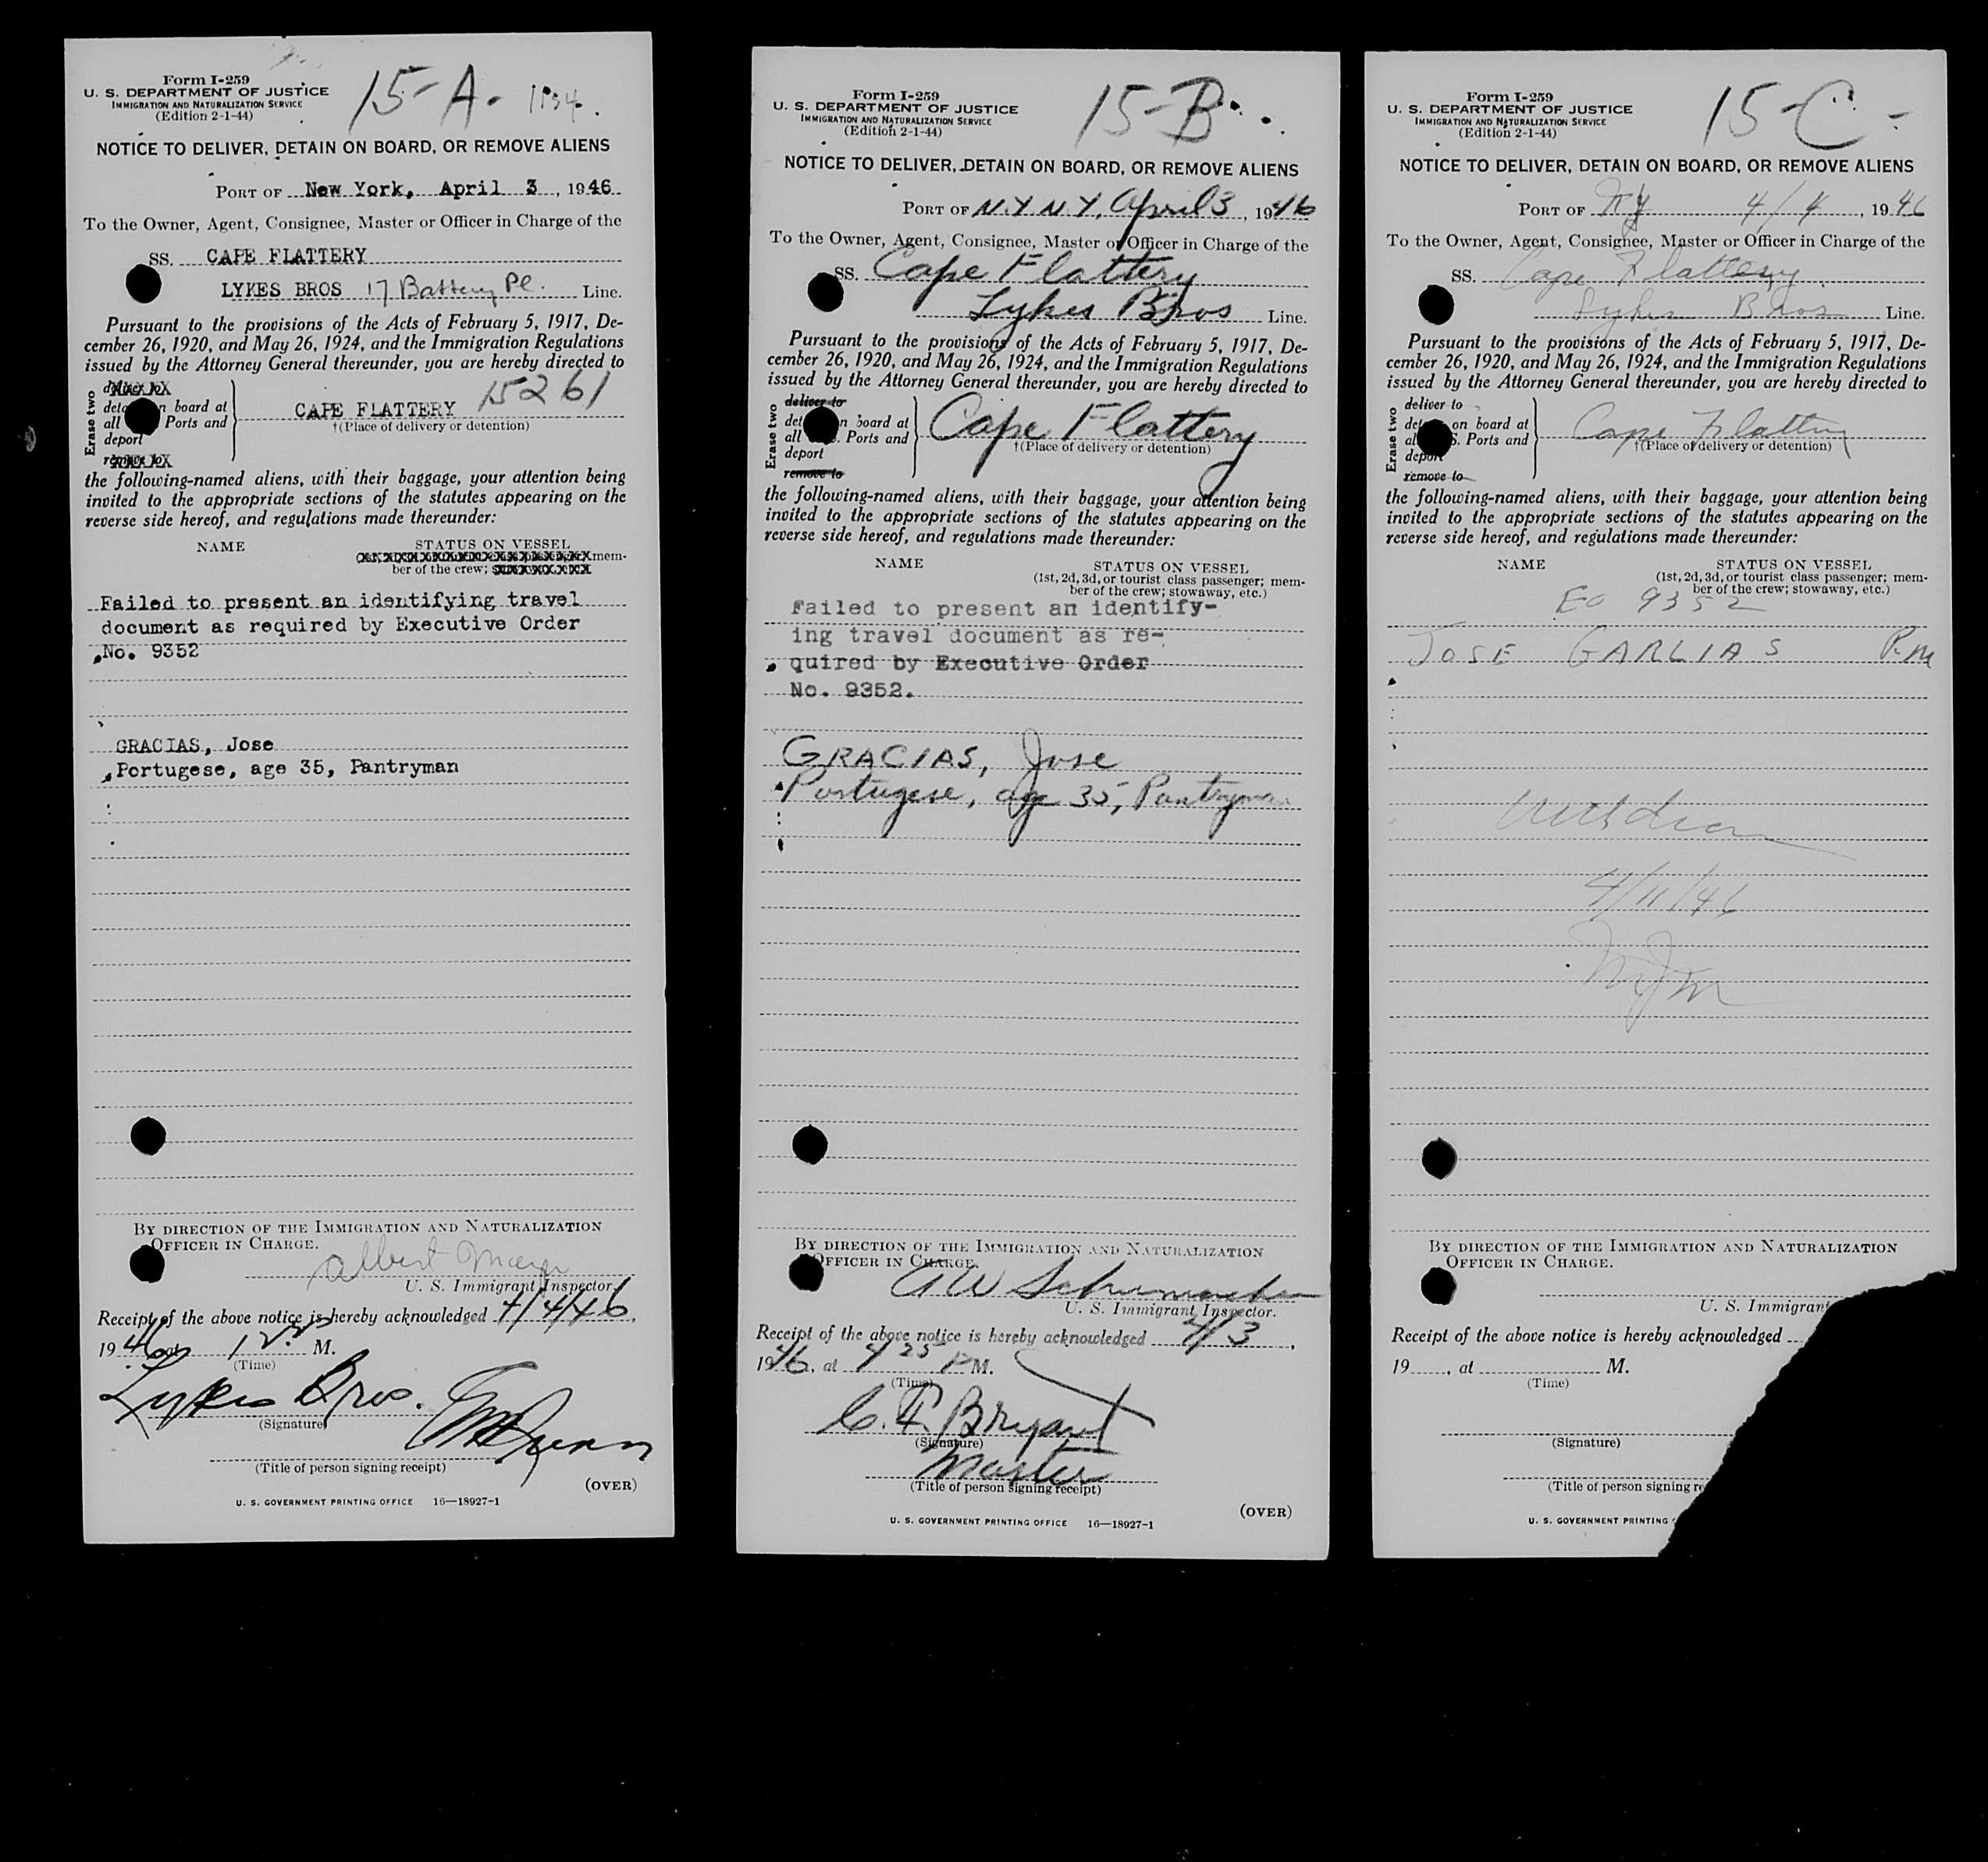 Form I-259
U. S. DEPARTMENT OF JUSTICE
IMMIGRATION AND NATURALIZATION SERVICE
(Edition 2-1-44)
15-A.
NOTICE TO DELIVER, DETAIN ON BOARD, OR REMOVE ALIENS
PORT OF New York, April 3, 1946
To the Owner, Agent, Consignee, Master or Officer in Charge of the
SS. CAPE FLATTERY
LYKES BROS 17 Battery Pl. Line.
Pursuant to the provisions of the Acts of February 5, 1917, De-
cember 26, 1920, and May 26, 1924, and the Immigration Regulations
issued by the Attorney General thereunder, you are hereby directed to
Erase two
n board at
all Ports and
deport
CAPE FLATTERY 15261
†(Place of delivery or detention)
the following-named aliens, with their baggage, your attention being
invited to the appropriate sections of the statutes appearing on the
reverse side hereof, and regulations made thereunder:
NAME STATUS ON VESSEL
mem-
ber of the crew;
Failed to present an identifying travel
document as required by Executive Order
No. 9352
GRACIAS, Jose
Portugese, age 35, Pantryman
BY DIRECTION OF THE IMMIGRATION AND NATURALIZATION
OFFICER IN CHARGE.
Albert
U. S. Immigrant Inspector.
Receipt of the above notice is hereby acknowledged 4/4/46,
1946 M.
(Time)
Lykes Bros.
(Signature)
(Title of person signing receipt)
(OVER)
U. S. GOVERNMENT PRINTING OFFICE 16—18927-1
Form I-259
U. S. DEPARTMENT OF JUSTICE
IMMIGRATION AND NATURALIZATION SERVICE
(Edition 2-1-44)
15-B.
NOTICE TO DELIVER, DETAIN ON BOARD, OR REMOVE ALIENS
PORT OF N.Y N.Y, April 3, 1946
To the Owner, Agent, Consignee, Master or Officer in Charge of the
SS. Cape Flattery
Lykes Bros Line.
Pursuant to the provisions of the Acts of February 5, 1917, De-
cember 26, 1920, and May 26, 1924, and the Immigration Regulations
issued by the Attorney General thereunder, you are hereby directed to
Erase two
deliver to
det n board at
all Ports and
deport
remove to
Cape Flattery
†(Place of delivery or detention)
the following-named aliens, with their baggage, your attention being
invited to the appropriate sections of the statutes appearing on the
reverse side hereof, and regulations made thereunder:
NAME STATUS ON VESSEL
(1st, 2d, 3d, or tourist class passenger; mem-
ber of the crew; stowaway, etc.)
Failed to present an identify-
ing travel document as re-
quired by Executive Order
No. 9352.
GRACIAS, Jose
Portugese, age 35, Pantryman
BY DIRECTION OF THE IMMIGRATION AND NATURALIZATION
OFFICER IN CHARGE.
A W Schumacher
U. S. Immigrant Inspector.
Receipt of the above notice is hereby acknowledged 4/3,
1946, at 4 25 P M.
(Time)
C. F. Bryant
(Signature)
Master
(Title of person signing receipt)
(OVER)
U. S. GOVERNMENT PRINTING OFFICE 16—18927-1
Form I-259
U. S. DEPARTMENT OF JUSTICE
IMMIGRATION AND NATURALIZATION SERVICE
(Edition 2-1-44)
15-C-
NOTICE TO DELIVER, DETAIN ON BOARD, OR REMOVE ALIENS
PORT OF NY 4/4, 1946
To the Owner, Agent, Consignee, Master or Officer in Charge of the
SS. Cape Flattery
Lykes Bros Line.
Pursuant to the provisions of the Acts of February 5, 1917, De-
cember 26, 1920, and May 26, 1924, and the Immigration Regulations
issued by the Attorney General thereunder, you are hereby directed to
Erase two
deliver to
det on board at
al S. Ports and
deport
remove to
Cape Flattery
†(Place of delivery or detention)
the following-named aliens, with their baggage, your attention being
invited to the appropriate sections of the statutes appearing on the
reverse side hereof, and regulations made thereunder:
NAME STATUS ON VESSEL
(1st, 2d, 3d, or tourist class passenger; mem-
ber of the crew; stowaway, etc.)
EO 9352
JOSE GARLIAS P.M
4/11/46
BY DIRECTION OF THE IMMIGRATION AND NATURALIZATION
OFFICER IN CHARGE.
U. S. Immigrant
Receipt of the above notice is hereby acknowledged
19, at M.
(Time)
(Signature)
(Title of person signing re
U. S. GOVERNMENT PRINTING